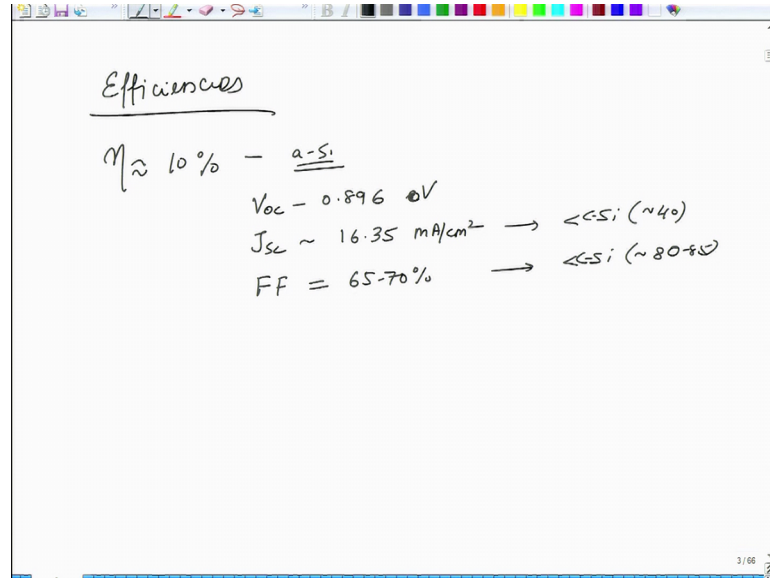 Efficiencies
η ≈ 10% - a-Si
Voc - 0.896 V
Jsc ~ 16.35 mA/cm² → << c-Si (~40)
FF = 65-70% → << c-Si (~80-85)
3 / 66